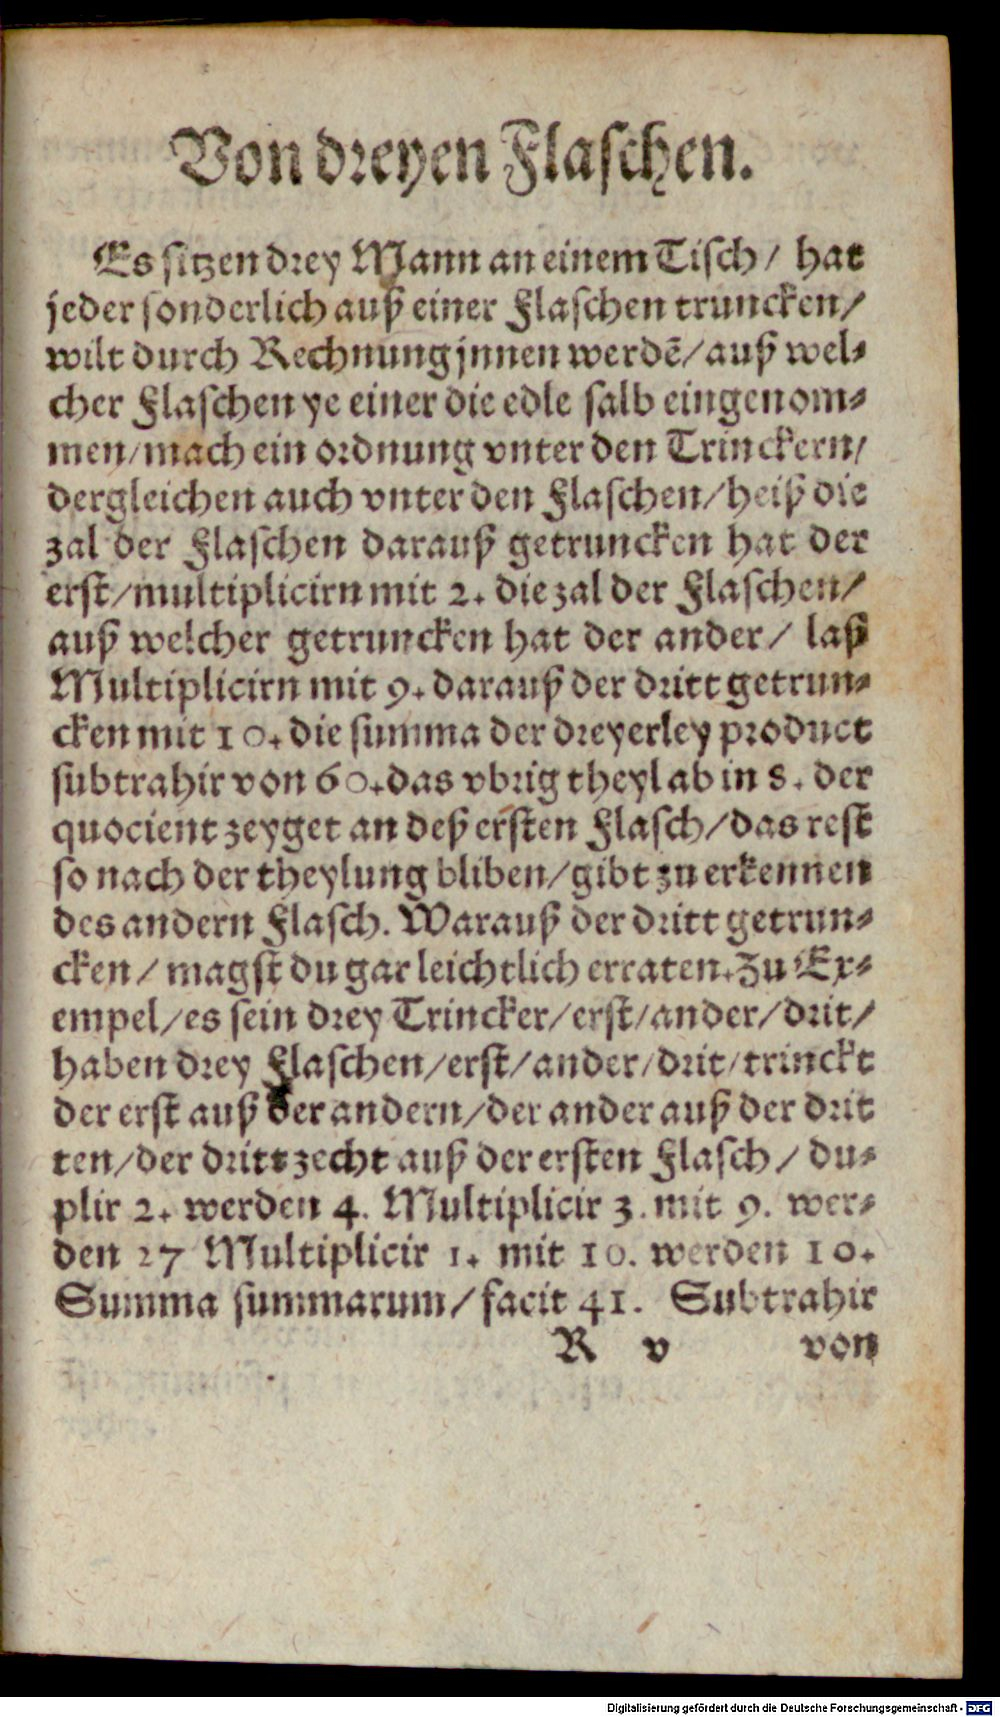 Von dreyen Flaschen.
Es sitzen drey Mann an einem Tisch/ hat
jeder sonderlich auß einer Flaschen truncken/
wilt durch Rechnung jnnen werdẽ/ auß wel⸗
cher Flaschen ye einer die edle salb eingenom⸗
men/ mach ein ordnung vnter den Trinckern/
dergleichen auch vnter den Flaschen/ heiß die
zal der Flaschen darauß getruncken hat der
erst/ multiplicirn mit 2. die zal der Flaschen/
auß welcher getruncken hat der ander/ laß
Multiplicirn mit 9. darauß der dritt getrun⸗
cken mit 10. die summa der dreyerley product
subtrahir von 60. das vbrig theyl ab in 8. der
quocient zeyget an deß ersten Flasch/ das rest
so nach der theylung bliben/ gibt zu erkennen
des andern Flasch. Warauß der dritt getrun⸗
cken/ magst du gar leichtlich erraten. Zu Ex⸗
empel/ es sein drey Trincker/ erst/ ander/ drit/
haben drey Flaschen/ erst/ ander/ drit/ trinckt
der erst auß der andern/ der ander auß der drit
ten/ der dritt zecht auß der ersten Flasch/ du⸗
plir 2. werden 4. Multiplicir 3. mit 9. wer⸗
den 27 Multiplicir 1. mit 10. werden 10.
Summa summarum/ facit 41. Subtrahir
R v von
Digitalisierung gefördert durch die Deutsche Forschungsgemeinschaft - DFG